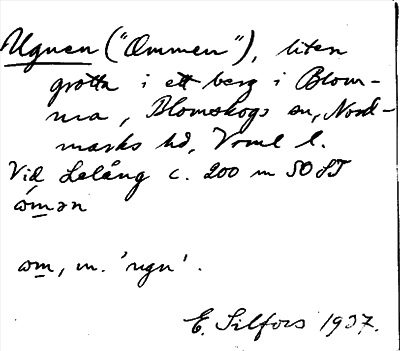 Ugnen ("Ommen"), liten
grotta i ett berg i Blom-
ma, Blomskogs sn, Nord-
marks hd, Vrml l.
Vid Lelång c. 200 m SO
óm̲ən
om̲, m. 'ugn'.
E. Silfors 1937.